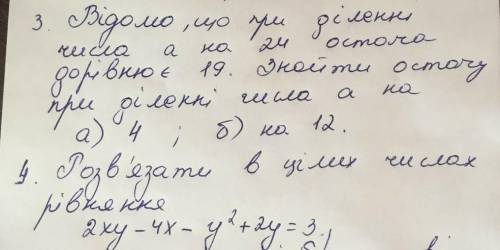 3. Відомо, що при діленні
числа a на 24 остача
дорівнює 19. Знайти остачу
при діленні числа a на
а) 4 ; б) на 12.
4. Розв'язати в цілих числах
рівняння
2xy - 4x - y² + 2y = 3.